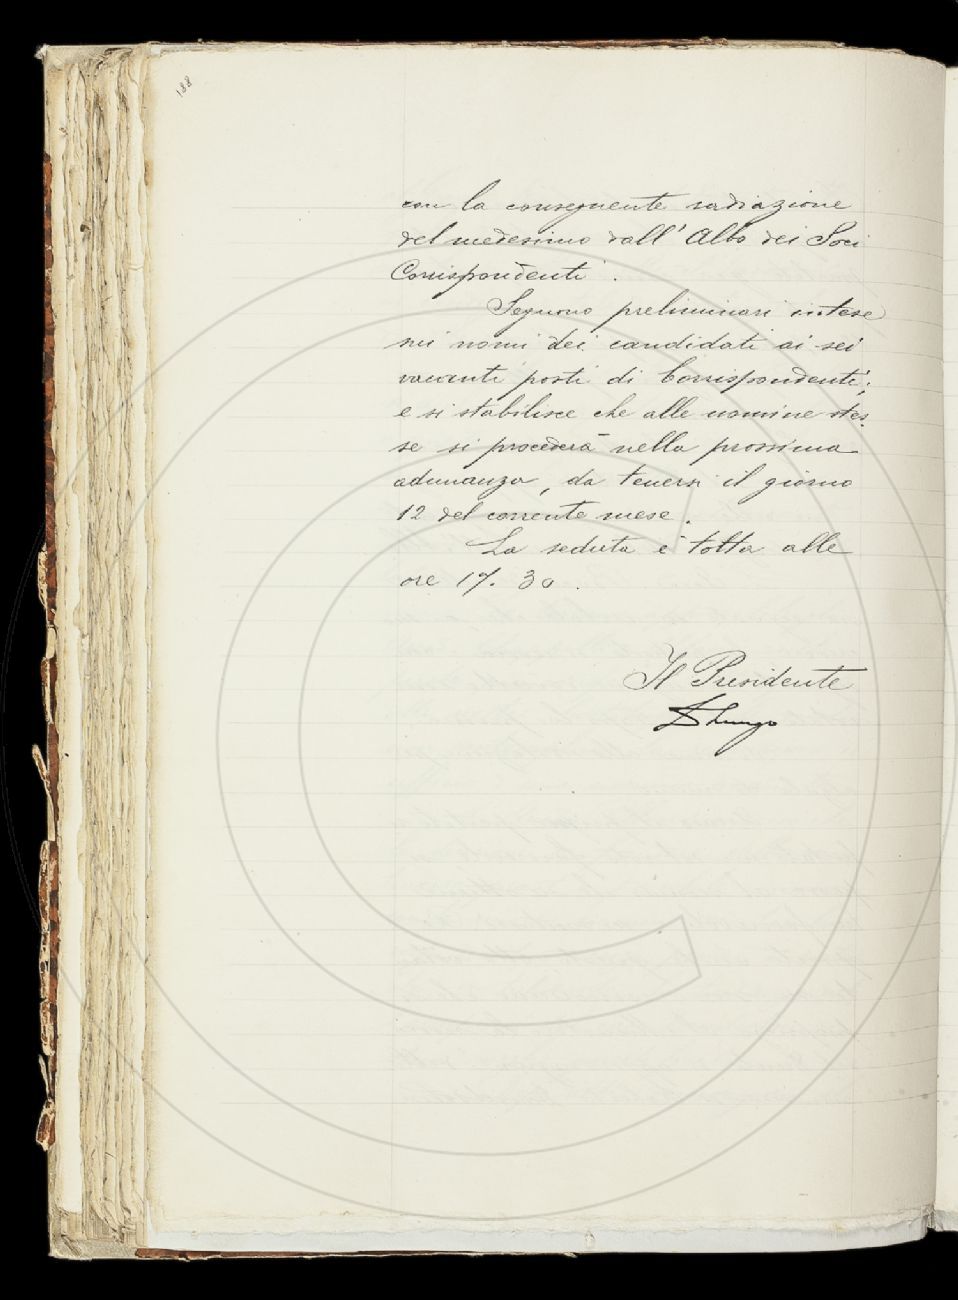 188
con la conseguente radiazione
del medesimo dall'Albo dei Soci
Corrispondenti.
Seguono preliminari intese
sui nomi dei candidati ai sei
vacanti posti di Corrispondenti;
e si stabilisce che alle nomine stes-
se si procederà nella prossima
adunanza, da tenersi il giorno
12 del corrente mese.
La seduta è tolta alle
ore 17.30.
Il Presidente